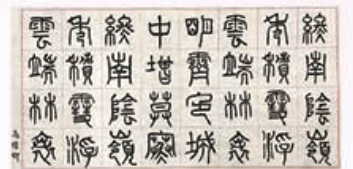 終南陰嶺
秀積雪浮
雲端林表
明霽色城
中增莫寒
終南陰嶺
秀積雪浮
雲端林表